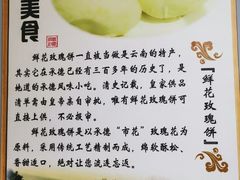 美食
『鲜花玫瑰饼』
鲜花玫瑰饼一直被当做是云南的特产,
其实它在承德已经有三百多年的历史了,是
地道的承德风味小吃。清史记载,皇家供品
清单需由皇帝亲自审核,唯有鲜花玫瑰饼可
直接上供,不必报审。
鲜花玫瑰饼是以承德“市花”玫瑰花为
原料,采用传统工艺精制而成,绵软酥松、
香甜适口,绝对让您流连忘返。